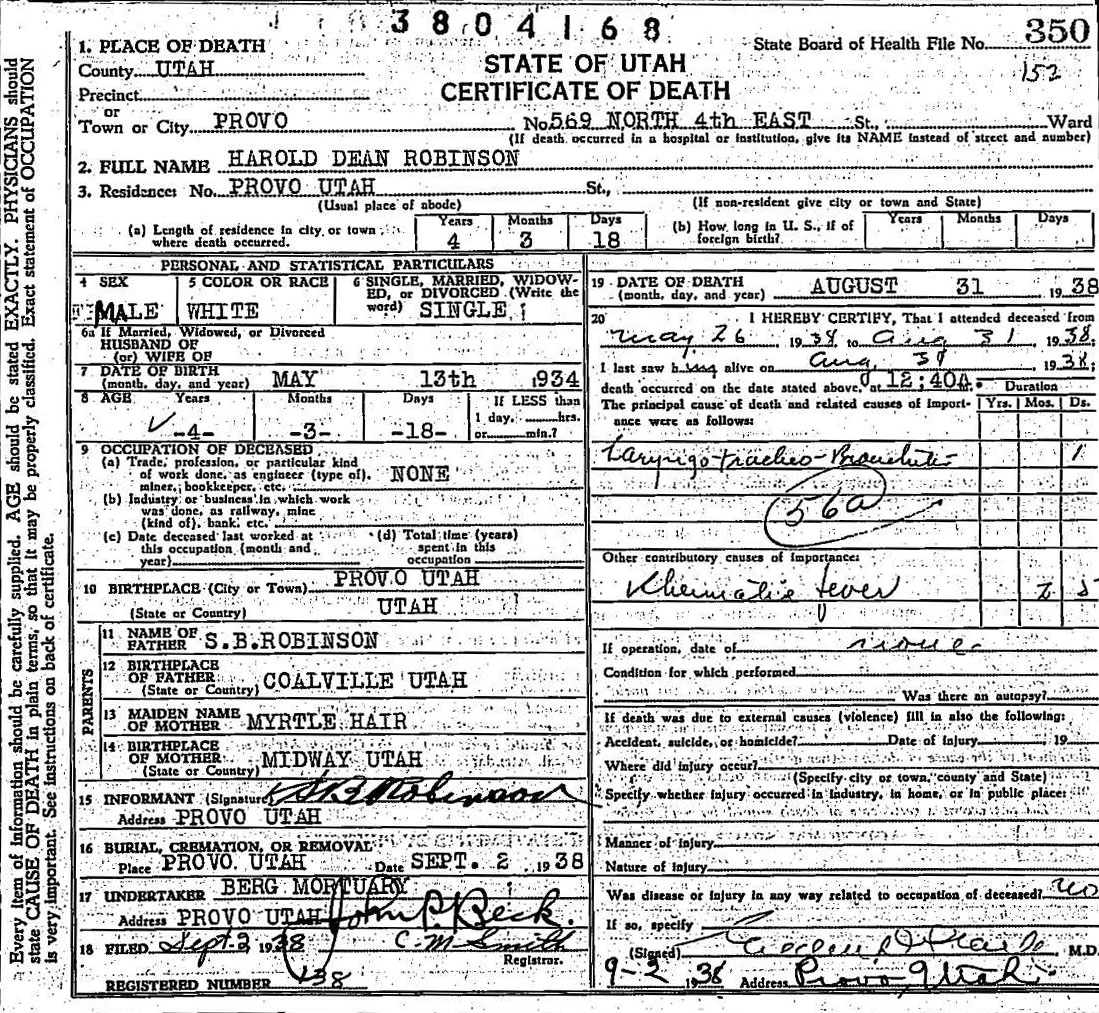 3804168
State Board of Health File No. 350
152
STATE OF UTAH
CERTIFICATE OF DEATH
1. PLACE OF DEATH
County UTAH
Precinct
or
Town or City PROVO No. 569 NORTH 4th EAST St., Ward
(If death occurred in a hospital or institution, give its NAME instead of street and number)
2. FULL NAME HAROLD DEAN ROBINSON
3. Residence: No. PROVO UTAH St.,
(Usual place of abode) (If non-resident give city or town and State)
(a) Length of residence in city or town where death occurred. Years 4 Months 3 Days 18
(b) How long in U. S., if of foreign birth? Years Months Days
PERSONAL AND STATISTICAL PARTICULARS
4 SEX MALE
5 COLOR OR RACE WHITE
6 SINGLE, MARRIED, WIDOWED, or DIVORCED (Write the word) SINGLE
6a If Married, Widowed, or Divorced
HUSBAND OF
(or) WIFE OF
7 DATE OF BIRTH
(month, day, and year) MAY 13th 1934
8 AGE Years Months Days If LESS than
1 day, hrs.
-4- -3- -18- or min.?
9 OCCUPATION OF DECEASED
(a) Trade, profession, or particular kind
of work done, as engineer (type of), NONE
miner, bookkeeper, etc.
(b) Industry or business in which work
was done, as railway, mine
(kind of), bank, etc.
(c) Date deceased last worked at
this occupation (month and
year)
(d) Total time (years)
spent in this
occupation
10 BIRTHPLACE (City or Town) PROVO UTAH
(State or Country) UTAH
PARENTS
11 NAME OF
FATHER S.B.ROBINSON
12 BIRTHPLACE
OF FATHER COALVILLE UTAH
(State or Country)
13 MAIDEN NAME
OF MOTHER MYRTLE HAIR
14 BIRTHPLACE
OF MOTHER MIDWAY UTAH
(State or Country)
15 INFORMANT (Signature) S B Robinson
Address PROVO UTAH
16 BURIAL, CREMATION, OR REMOVAL
Place PROVO UTAH Date SEPT. 2 1938
17 UNDERTAKER BERG MORTUARY
Address PROVO UTAH John P. Beck.
18 FILED Sept-2 1938 C. M Smith
Registrar.
REGISTERED NUMBER 138
19 DATE OF DEATH
(month, day, and year) AUGUST 31 1938
20 I HEREBY CERTIFY, That I attended deceased from
May 26, 1938 to Aug 31 1938;
I last saw him alive on Aug. 31 1938;
death occurred on the date stated above, at 12:40A. Duration
The principal cause of death and related causes of importance were as follows: Yrs. Mos. Ds.
Laryngo-tracheo-Bronchitis 1
56a
Other contributory causes of importance:
Rheumatic fever 2 5
If operation, date of none
Condition for which performed
Was there an autopsy?
If death was due to external causes (violence) fill in also the following:
Accident, suicide, or homicide? Date of injury 19
Where did injury occur?
(Specify city or town, county and State)
Specify whether injury occurred in industry, in home, or in public place:
Manner of injury
Nature of injury
Was disease or injury in any way related to occupation of deceased? no
If so, specify
(Signed) M.D.
9-2 1938 Address Provo, Utah
Every item of information should be carefully supplied. AGE should be stated EXACTLY. PHYSICIANS should
state CAUSE OF DEATH in plain terms, so that it may be properly classified. Exact statement of OCCUPATION
is very important. See instructions on back of certificate.